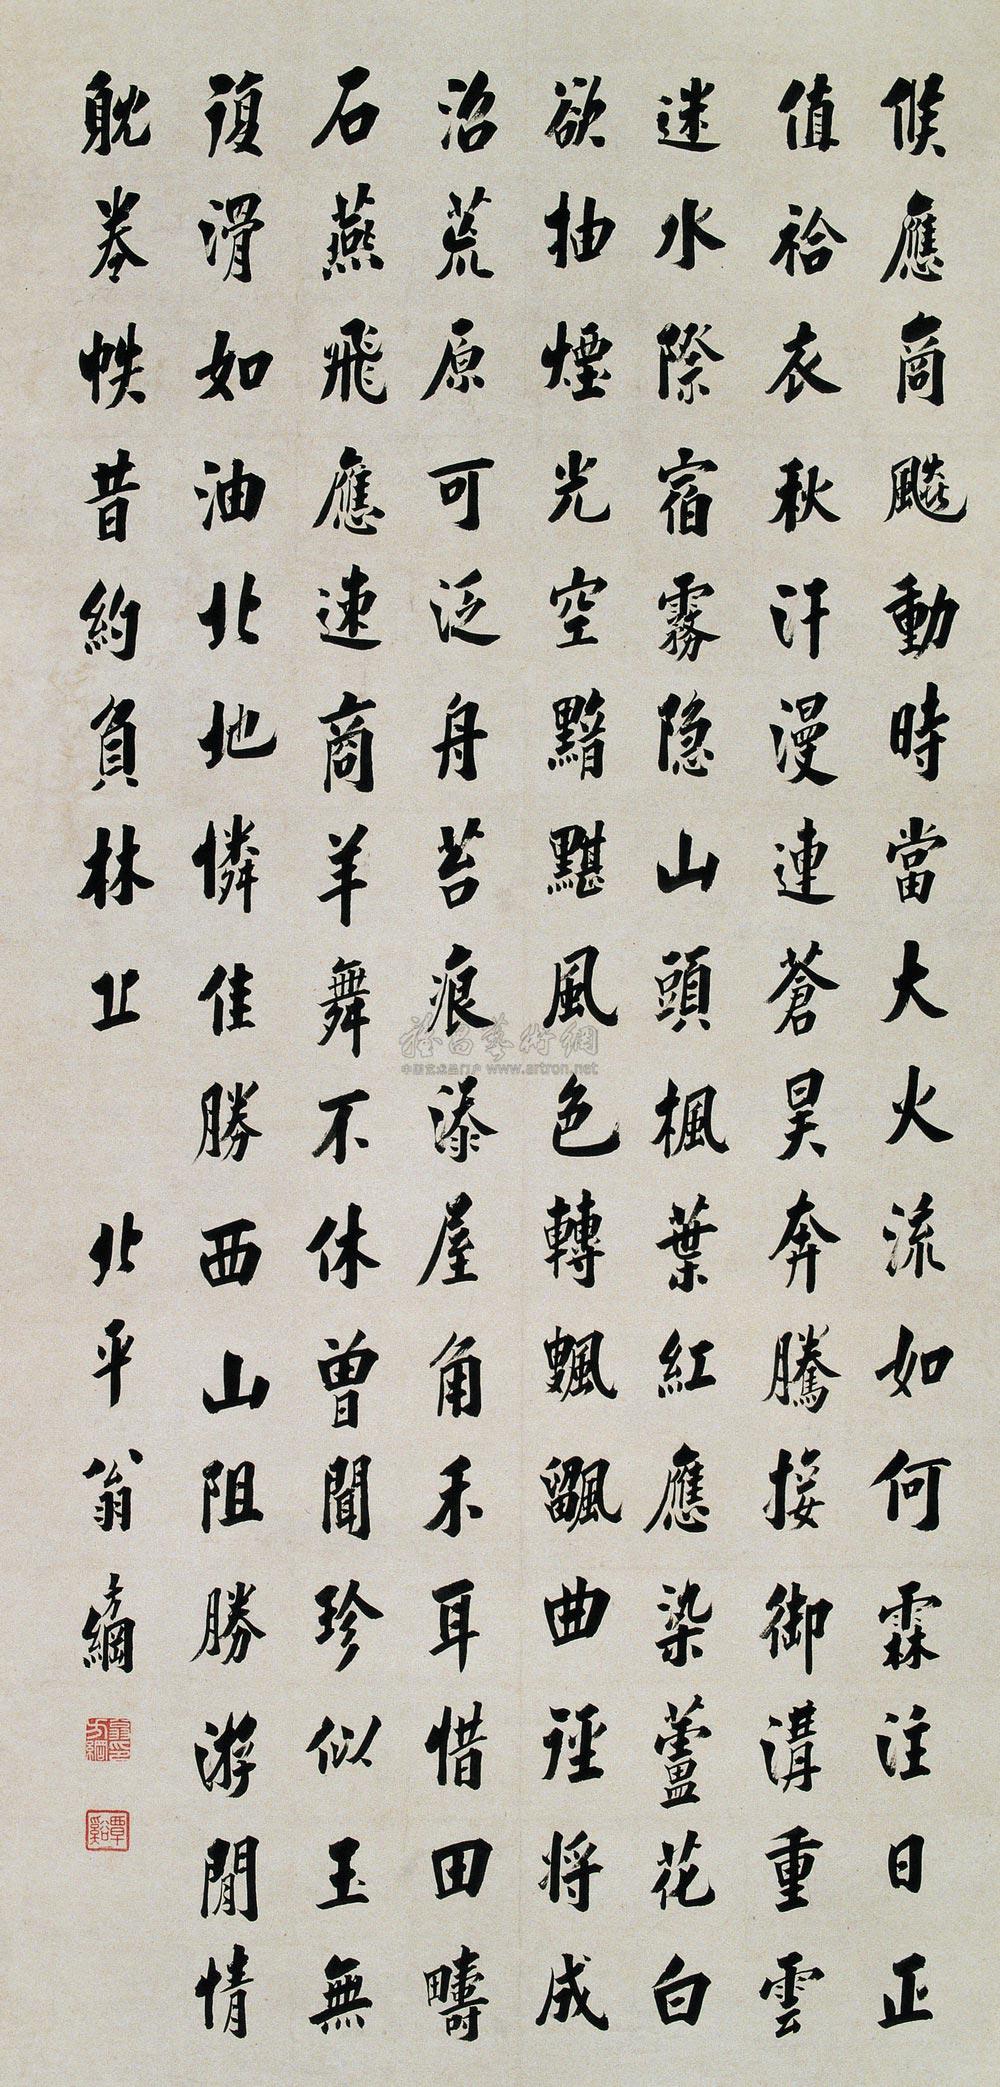 候應商飈動時當大火流如何霖注日正
值袷衣秋汗漫連蒼昊奔騰接御溝重雲
迷水際宿霧隐山頭楓葉紅應染蘆花白
欲抽煙光空黯黮風色轉颿飀曲徑将成
沼荒原可泛舟苔痕漆屋角禾耳惜田疇
石燕飛應速商羊舞不休曾聞珍似玉無
復滑如油北地憐佳勝西山阻勝游閒情
躭卷帙昔約負林丘
北平翁方綱
翁方綱印
覃谿
雅昌藝術網
中国艺术品门户 www.artron.net